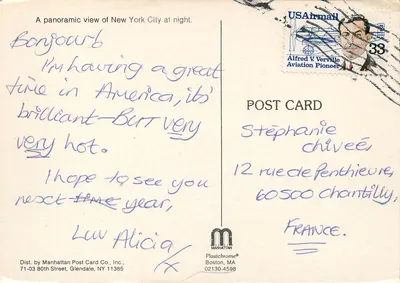 A panoramic view of New York City at night.
Bonjour!
I'm having a great
time in America, it's
brilliant - BUT very
very hot.
I hope to see you
next time year,
Luv Alicia
x
USAirmail
33
Alfred V. Verville
Aviation Pioneer
POST CARD
Stéphanie
Chivée,
12 rue de Penthievre,
60500 Chantilly,
FRANCE.
MANHATTAN
Plastichrome®
Boston, MA
02130-4598
Dist. by Manhattan Post Card Co., Inc.,
71-03 80th Street, Glendale, NY 11385